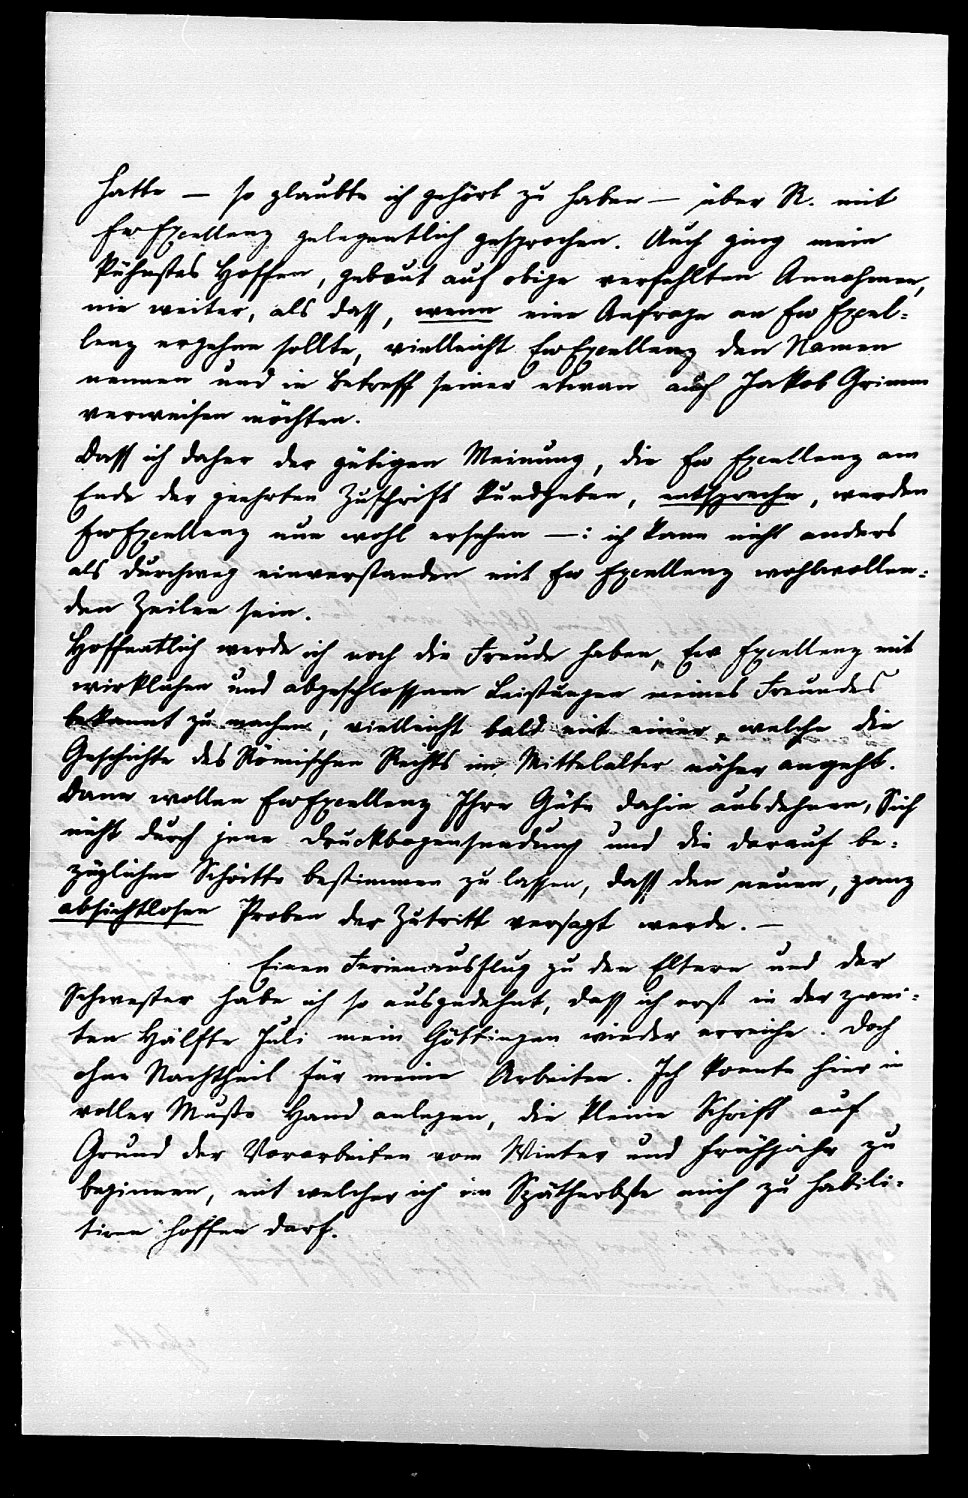 hatte — so glaubte ich gehört zu haben — über R. mit
Ew Excellenz gelegentlich gesprochen. Auch ging mein
kühnstes Hoffen, gebaut auf obige verfehlten Annahmen,
nie weiter, als dass, wenn eine Anfrage an Ew Excel-
lenz ergehen sollte, vielleicht Ew Excellenz den Namen
nennen und in Betreff seiner etwan auch Jakob Grimm
verweisen möchten.
Dass ich daher der gütigen Meinung, die Ew Excellenz am
Ende der geehrten Zuschrift kundgeben, entspreche, werden
Ew Excellenz nun wohl ersehen —: ich kann nicht anders
als durchweg einverstanden mit Ew Excellenz wohlwollen-
den Zeilen sein.
Hoffentlich werde ich noch die Freude haben, Ew Excellenz mit
wirklichen und abgeschlossnen Leistungen meines Freundes
bekannt zu machen, vielleicht bald mit einer, welche die
Geschichte des Römischen Rechts im Mittelalter näher angeht.
Dann wollen Ew Excellenz Ihre Güte dahin ausdehnen, Sich
nicht durch jene Druckbogensendung und die darauf be-
züglichen Schritte bestimmen zu lassen, dass den neuen, ganz
absichtlosen Proben der Zutritt versagt werde. —
Einen Ferienausflug zu den Eltern und der
Schwester habe ich so ausgedehnt, dass ich erst in der zwei-
ten Hälfte Juli mein Göttingen wieder erreiche. Doch
ohne Nachtheil für meine Arbeiten. Ich konnte hier in
voller Muße Hand anlegen, die kleine Schrift auf
Grund der Vorarbeiten vom Winter und Frühjahr zu
beginnen, mit welcher ich im Spätherbste mich zu habili-
tiren hoffen darf.